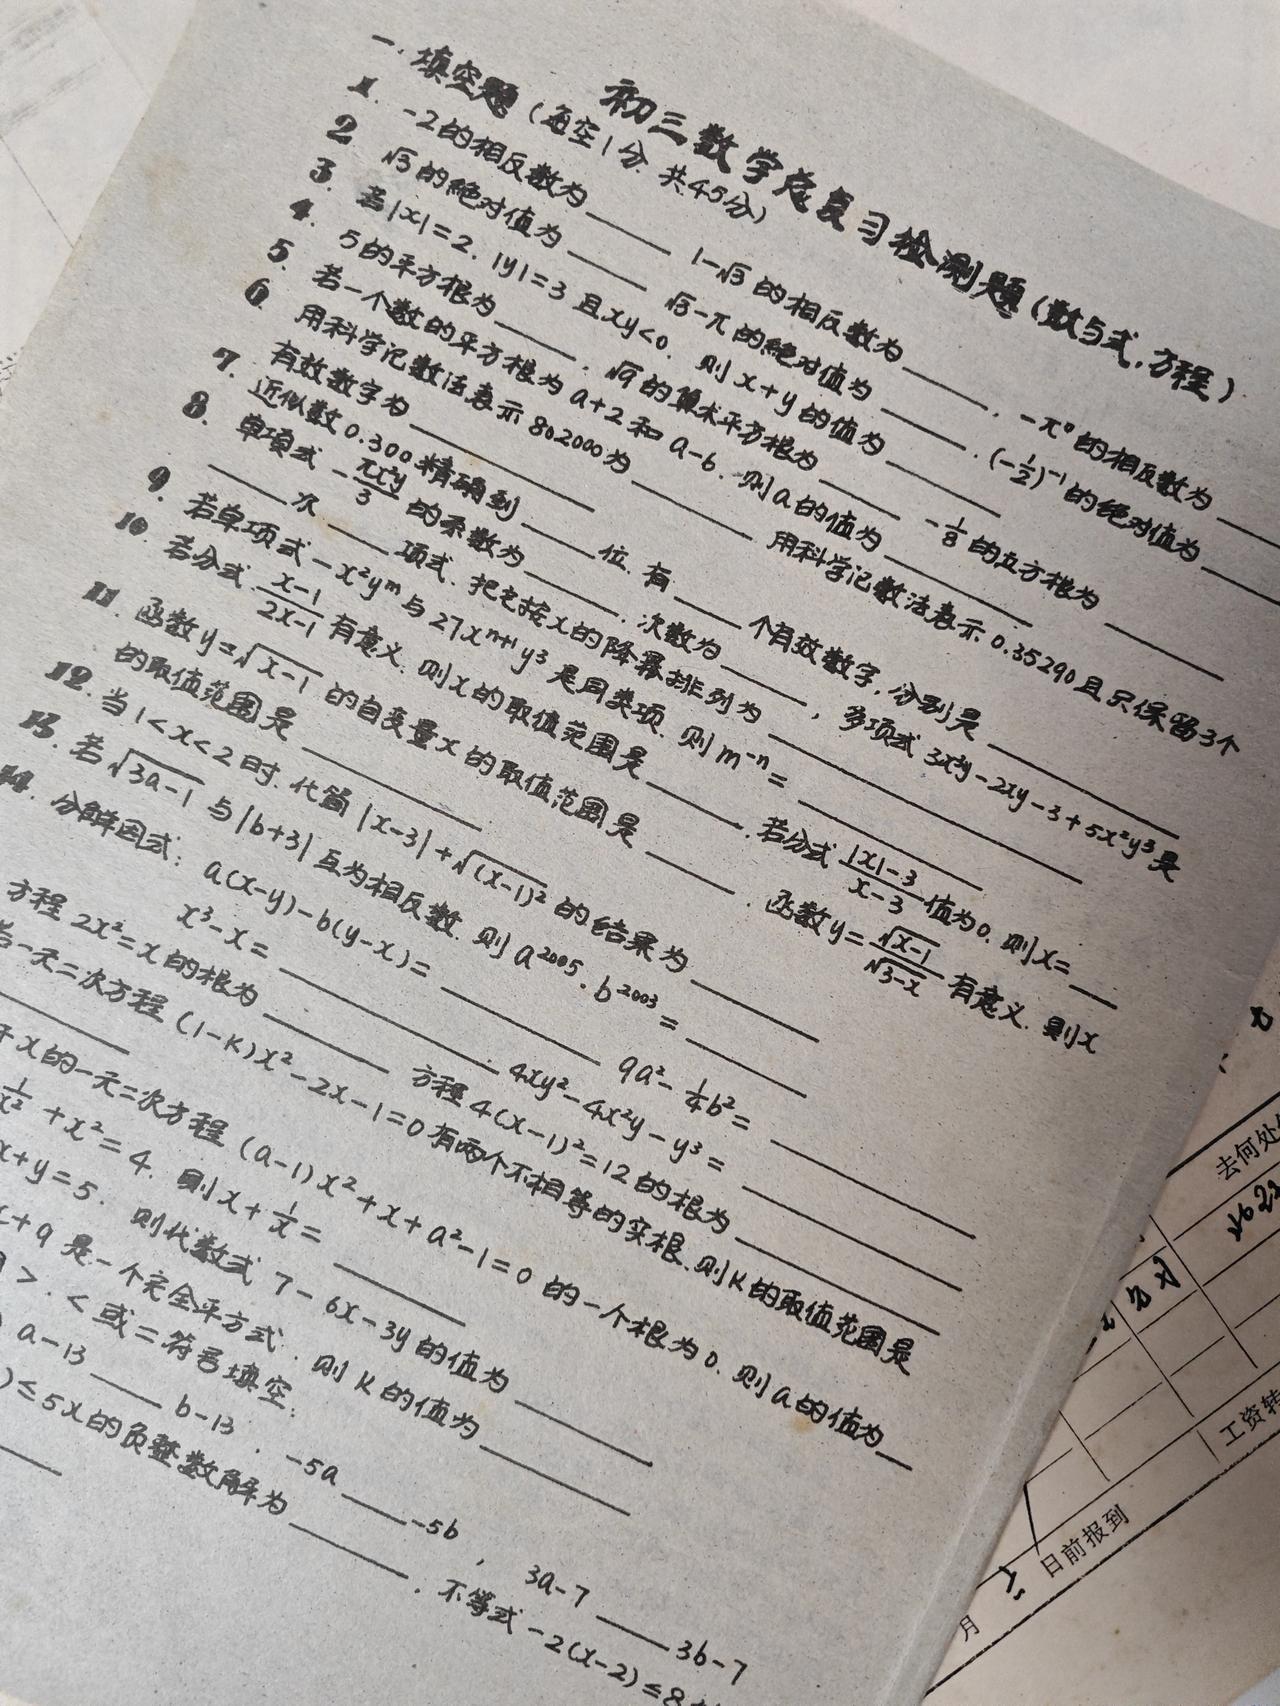 初三数学总复习检测题(数与式.方程)
一.填空题(每空1分.共45分)
1. -2的相反数为____ 1-√3的相反数为____. -π⁰的相反数为____
2 √3的绝对值为____ √3-π的绝对值为____. (-1/2)⁻¹的绝对值为____
3. 若|x|=2. |y|=3且xy<0. 则x+y的值为____
4. 5的平方根为____. √9的算术平方根为____ -1/8的立方根为____
5. 若一个数的平方根为a+2和a-6. 则a的值为____
6 用科学记数法表示802000为____ 用科学记数法表示0.35290且只保留3个
有效数字为____
7. 近似数0.300精确到____位. 有____个有效数字, 分别是____
8. 单项式-πx²y/3的系数为____. 次数为____, 多项式3x³y-2xy-3+5x²y³是
____次____项式. 把它按x的降幂排列为____
9. 若单项式-x²yᵐ与27xⁿ⁺¹y³是同类项. 则m⁻ⁿ=____
10. 若分式(x-1)/(2x-1)有意义. 则x的取值范围是____. 若分式(|x|-3)/(x-3)值为0. 则x=____
11. 函数y=√(x-1)的自变量x的取值范围是____. 函数y=√(x-1)/√(3-x)有意义. 则x
的取值范围是____
12. 当1<x<2时. 代简|x-3|+√(x-1)²的结果为____
13. 若√(3a-1)与|b+3|互为相反数. 则a²⁰⁰⁵·b²⁰⁰³=____
14. 分解因式: a(x-y)-b(y-x)=____ 9a²-1/4b²=____
x³-x=____ 4xy²-4x²y-y³=____
方程2x²=x的根为____ 方程4(x-1)²=12的根为____
一元二次方程(1-k)x²-2x-1=0有两个不相等的实根. 则k的取值范围是
____
x的一元二次方程(a-1)x²+x+a²-1=0的一个根为0. 则a的值为____
1/x²+x²=4. 则x+1/x=____
x+y=5. 则代数式7-6x-3y的值为____
x+9是一个完全平方式. 则k的值为____
>. <或=符号填空:
a-13____b-13. -5a____-5b, 3a-7____3b-7
)≤5x的负整数解为____. 不等式-2(x-2)≤8
____
去何处
工资转
日前报到
月